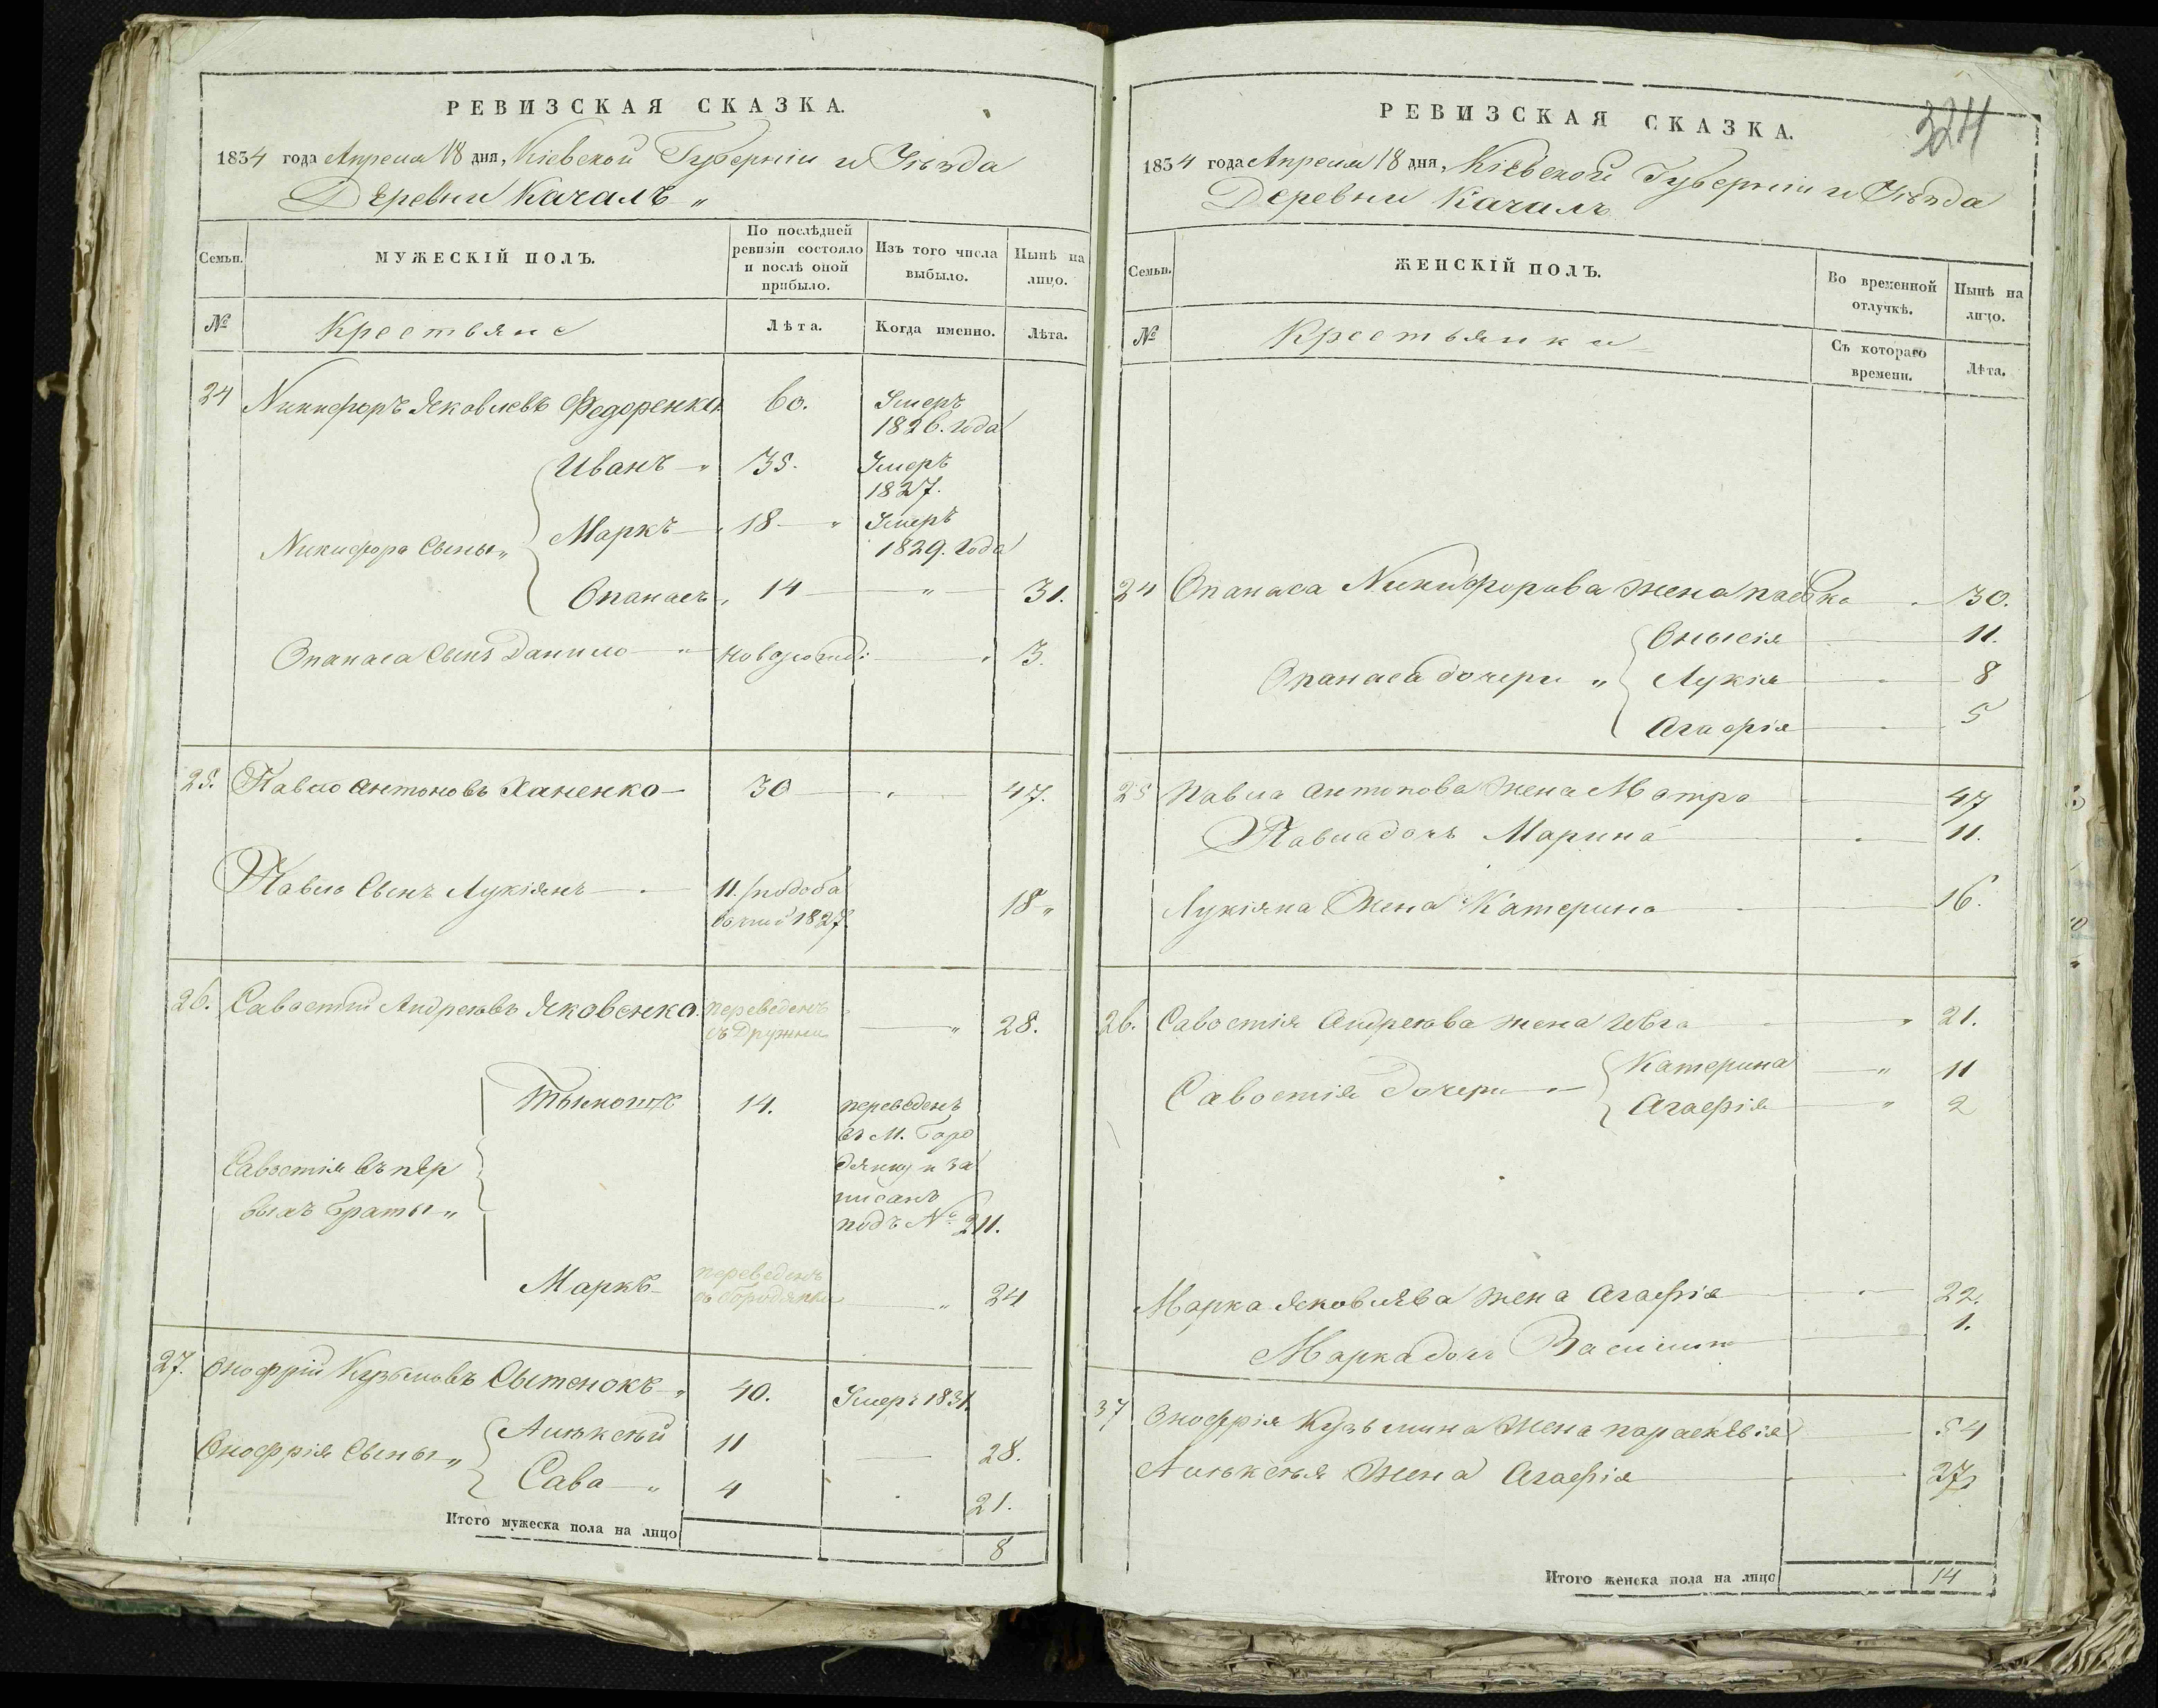 РЕВИЗСКАЯ СКАЗКА.
1834 года Апреля 18 дня, Кіевской Губерніи и Уѣзда
Деревни Качалъ „
Семьи.
МУЖЕСКІЙ ПОЛЪ.
По послѣдней
ревизіи состояло
и послѣ оной
прибыло.
Изъ того числа
выбыло.
Нынѣ на
лицо.
№
Крестьяне
Лѣта.
Когда именно.
Лѣта.
24 Никифоръ Яковлевъ Федоренко 60. Умеръ
1826. года
Иванъ 35. Умеръ
1827.
Никифора Сыны „ Маркъ 18 Умеръ
1829. года
Опанасъ 14 „ 31.
Опанаса Сынъ Данило новорожд: 3.
25. Павло Антоновъ Ханенко 30 47.
Павла Сынъ Лукіянъ 11. 1827 18 „
26. Савостій Андреевъ Яковенко переведенъ
съ Дружни „ 28.
14. переведенъ
въ М. Горо
дянку и за
писанъ
подъ № 211.
Савостія въ пер
выхъ браты „
Маркъ переведенъ
съ Бородянки „ 24
27. Онофрій Кузьмовъ Сытенокъ „ 40. Умеръ 1831.
Онофрія Сыны „ Алѣксѣй 11 28.
Сава „ 4 21.
Итого мужеска пола на лицо 8
324
РЕВИЗСКАЯ СКАЗКА.
1834 года Апреля 18 дня, Кіевской Губерніи и Уѣзда
Деревни Качалъ
Семьи.
ЖЕНСКІЙ ПОЛЪ.
Во временной
отлучкѣ.
Нынѣ на
лицо.
№
Крестьянки
Съ котораго
времени.
Лѣта.
24 Опанаса Никифорова жена 30.
Онысія 11.
Опанаса дочери „ Лукія 8
Агафія 5
25 Павла Антонова жена Мотра 47
Павла дочь Марина 11.
Лукіяна Жена Катерина 16.
26. Савостія Андреева жена Ивга „ 21.
Савостія дочери „ Катерина „ 11
Агафія „ 2
Марка Яковлева жена Агафія 22.
Марка дочь 1.
37 Онофрія Кузьмина Жена параскѣвія 54
Алѣксѣя Жена Агафія 27
Итого женска пола на лицо 14